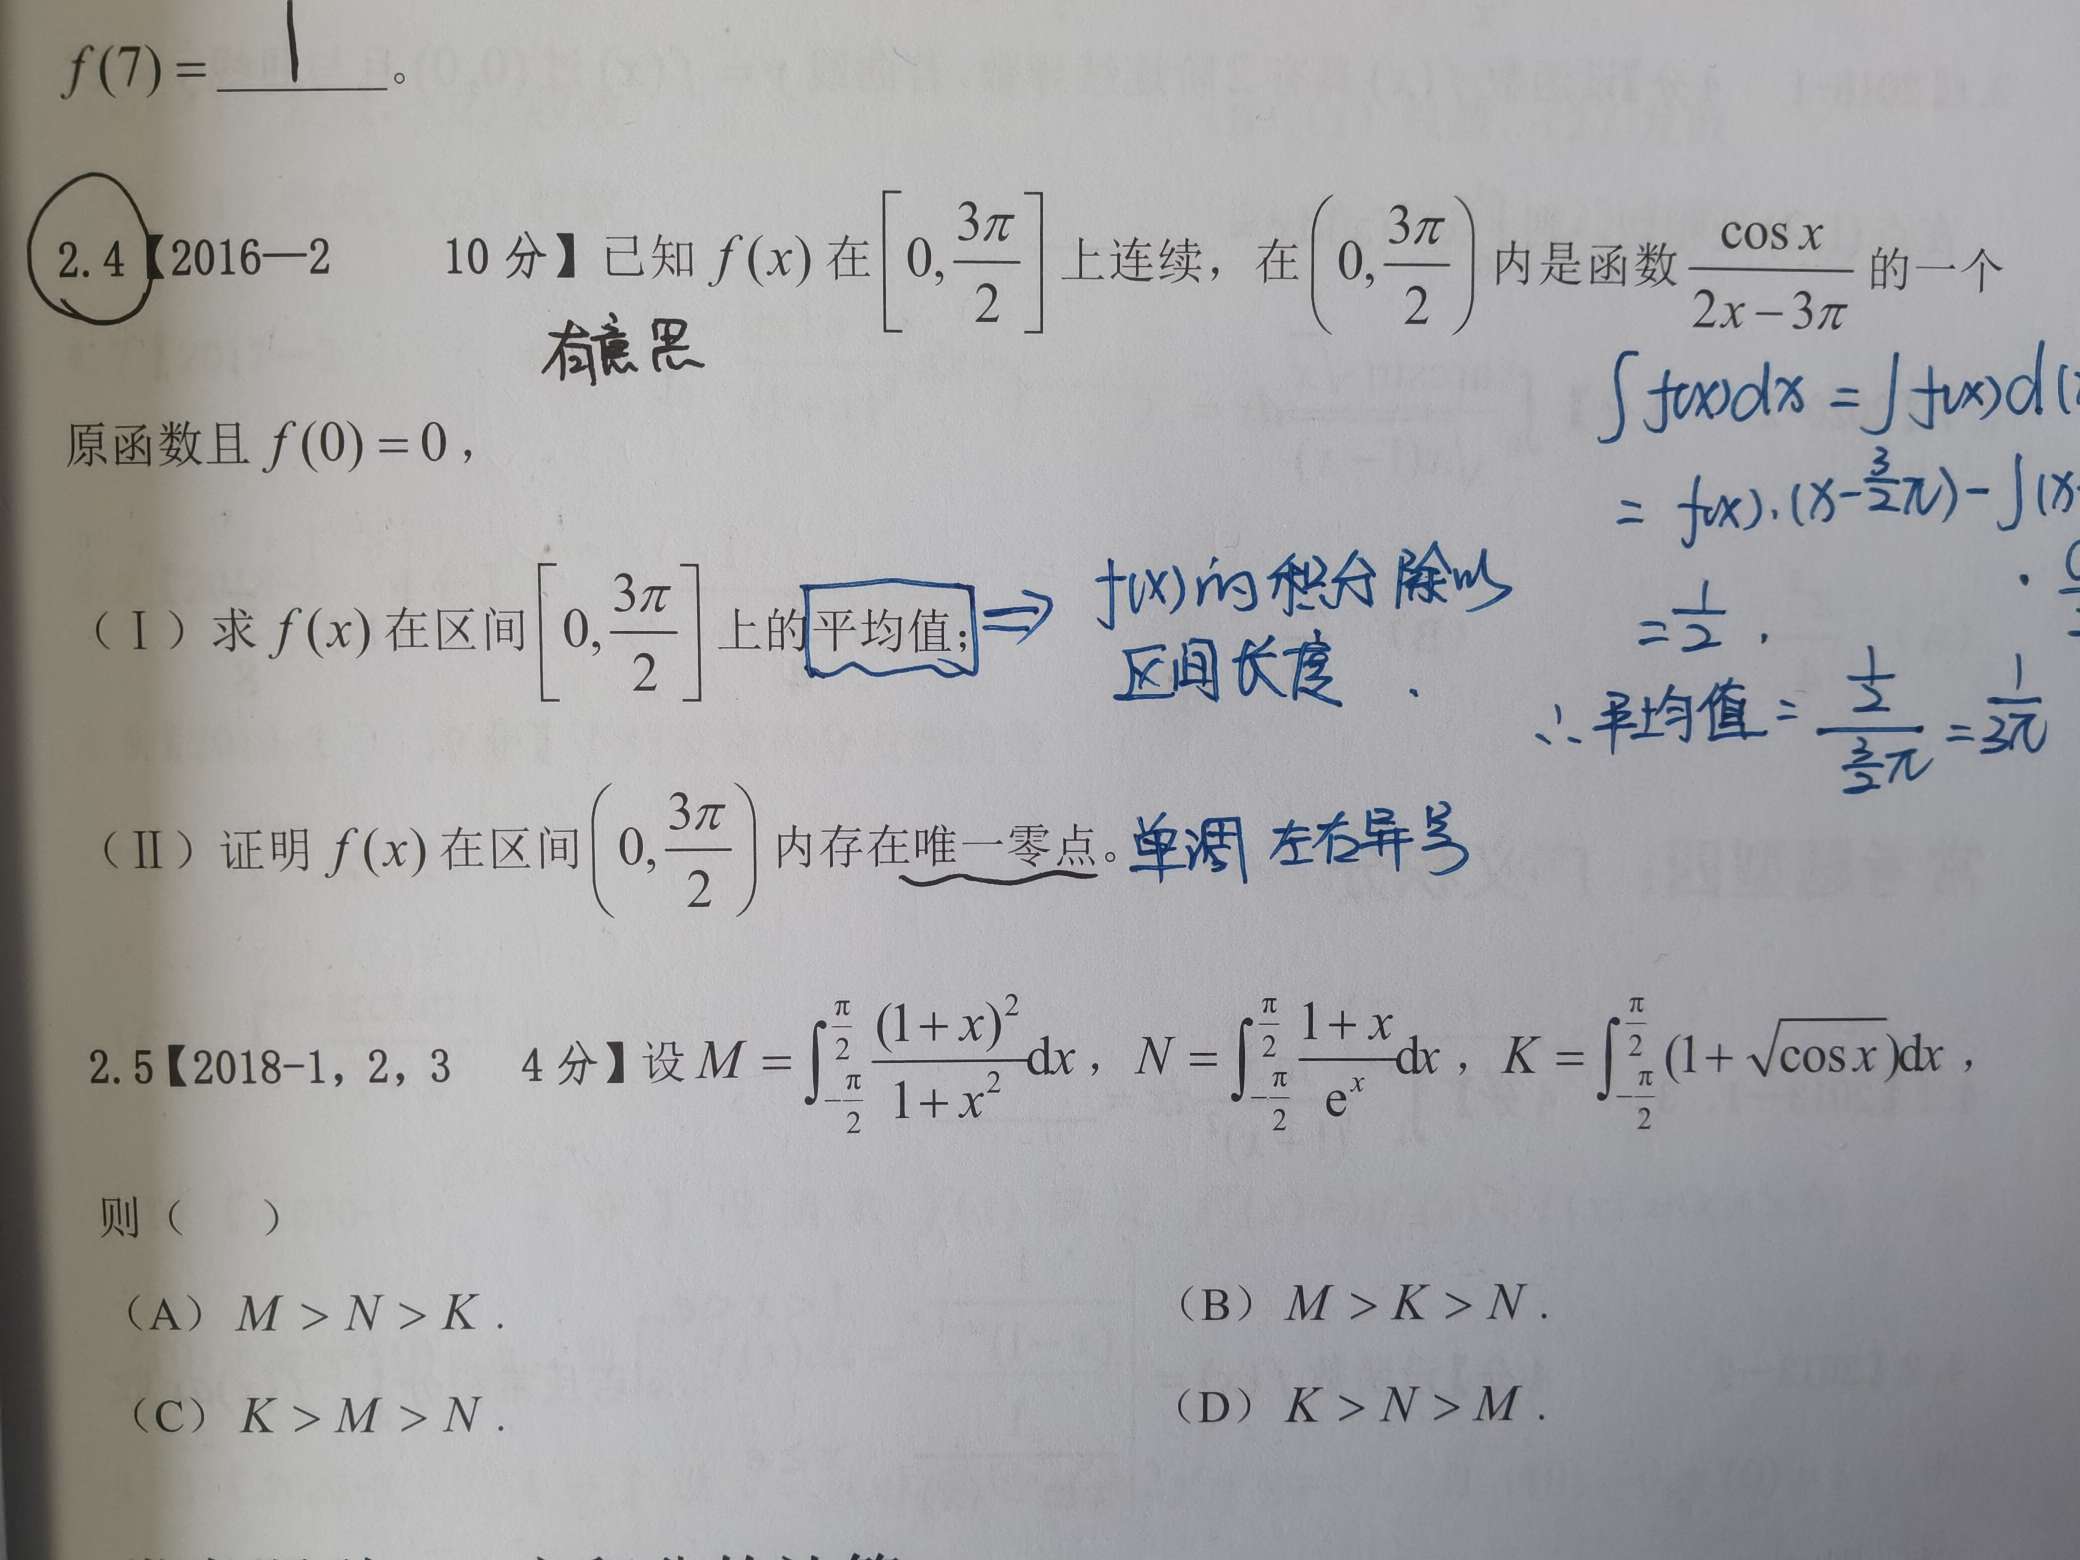 f(7)= 1 。
2.4【2016—2 10分】已知 f(x) 在[0, 3π/2]上连续，在(0, 3π/2)内是函数 cos x/(2x−3π) 的一个
有意思
原函数且 f(0)=0，
∫f(x)dx = ∫f(x)d(
= f(x)·(x−3/2π)−∫(x
（Ⅰ）求 f(x) 在区间[0, 3π/2]上的平均值；⇒ f(x)的积分除以
区间长度.
=1/2.
∴平均值= (1/2)/(3/2π) = 1/3π
（Ⅱ）证明 f(x) 在区间(0, 3π/2)内存在唯一零点。单调 左右异号
2.5【2018-1, 2, 3 4分】设 M = ∫_{-π/2}^{π/2} (1+x)²/(1+x²) dx，N = ∫_{-π/2}^{π/2} (1+x)/eˣ dx，K = ∫_{-π/2}^{π/2} (1+√cos x)dx，
则（ ）
（A）M > N > K .
（B）M > K > N .
（C）K > M > N .
（D）K > N > M .